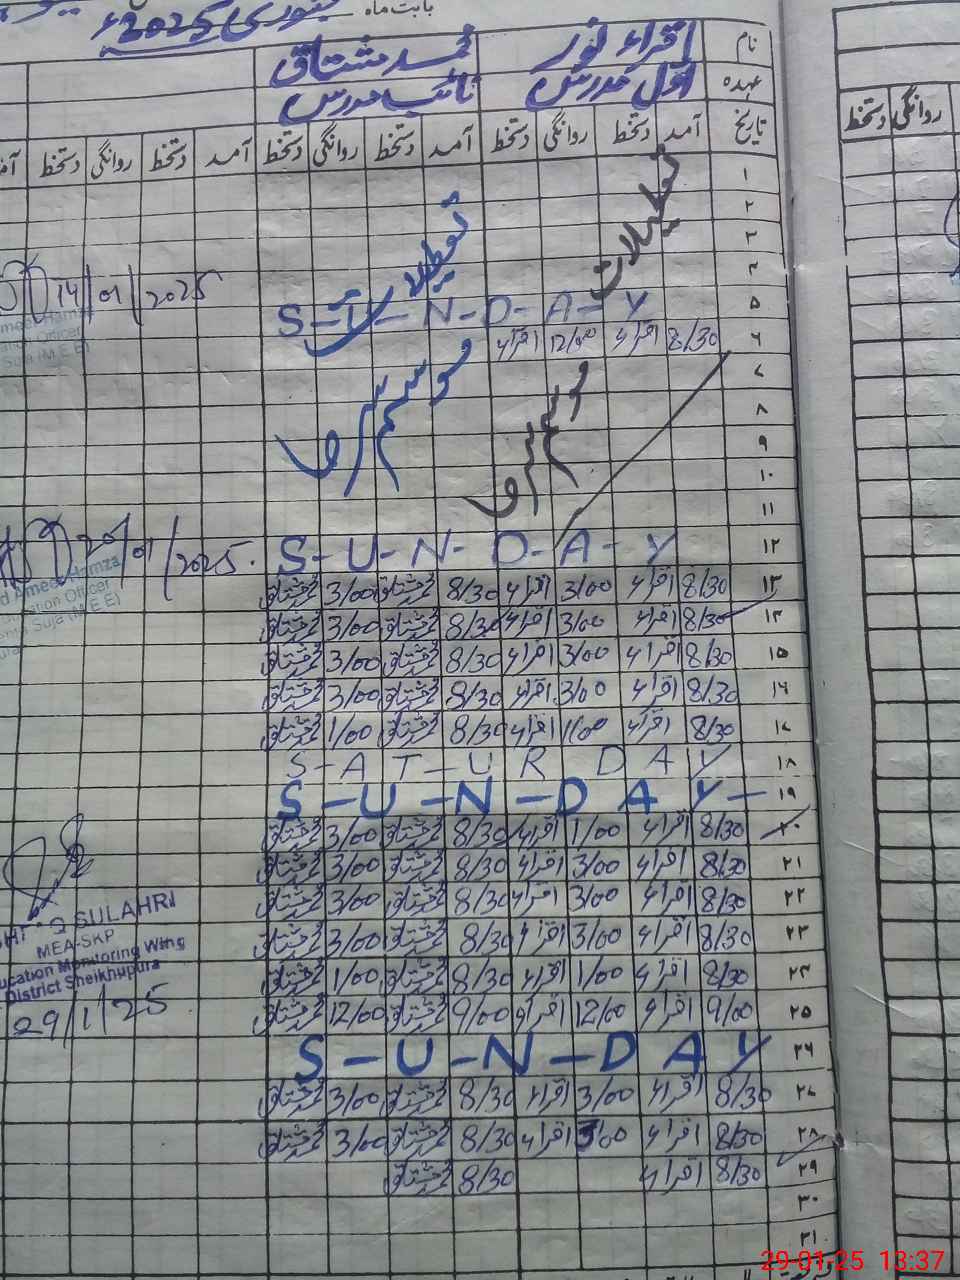 بابت ماہ جنوری 2025ء
نام اقراء نور محمد مشتاق
عہدہ اول مدرس نائب مدرس
تاریخ آمد دستخط روانگی دستخط آمد دستخط روانگی دستخط آمد دستخط روانگی دستخط روانگی دستخط
۱
۲
۳
تعطیلات تعطیلات
۴
14/01/2025
۵ S-U-N-D-A-Y
۶ 8/30 اقراء 12/00 اقراء
۷
۸
موسم سرما موسم سرما
۹
۱۰
۱۱
۱۲ S-U-N-D-A-Y
20/01/2025
Ameer Hamza
Education Officer
Suja (M.E.E)
۱۳ 8/30 اقراء 3/00 اقراء 8/30 محمد مشتاق 3/00 محمد مشتاق
۱۴ 8/30 اقراء 3/00 اقراء 8/30 محمد مشتاق 3/00 محمد مشتاق
۱۵ 8/30 اقراء 3/00 اقراء 8/30 محمد مشتاق 3/00 محمد مشتاق
۱۶ 8/30 اقراء 3/00 اقراء 8/30 محمد مشتاق 3/00 محمد مشتاق
۱۷ 8/30 اقراء 1/00 اقراء 8/30 محمد مشتاق 1/00 محمد مشتاق
۱۸ S-A-T-U R D A Y
۱۹ S-U-N-D A Y-
۲۰ 8/30 اقراء 1/00 اقراء 8/30 محمد مشتاق 3/00 محمد مشتاق
۲۱ 8/30 اقراء 3/00 اقراء 8/30 محمد مشتاق 3/00 محمد مشتاق
۲۲ 8/30 اقراء 3/00 اقراء 8/30 محمد مشتاق 3/00 محمد مشتاق
۲۳ 8/30 اقراء 3/00 اقراء 8/30 محمد مشتاق 3/00 محمد مشتاق
۲۴ 8/30 اقراء 1/00 اقراء 8/30 محمد مشتاق 1/00 محمد مشتاق
۲۵ 9/00 اقراء 12/00 اقراء 9/00 محمد مشتاق 12/00 محمد مشتاق
SULAHRI
MEA-SKP
Education Monitoring Wing
District Sheikhupura
29/1/25
۲۶ S-U-N-D A Y
۲۷ 8/30 اقراء 3/00 اقراء 8/30 محمد مشتاق 3/00 محمد مشتاق
۲۸ 8/30 اقراء 3/00 اقراء 8/30 محمد مشتاق 3/00 محمد مشتاق
۲۹ 8/30 اقراء 8/30 محمد مشتاق
۳۰
۳۱
29-01-25 13:37